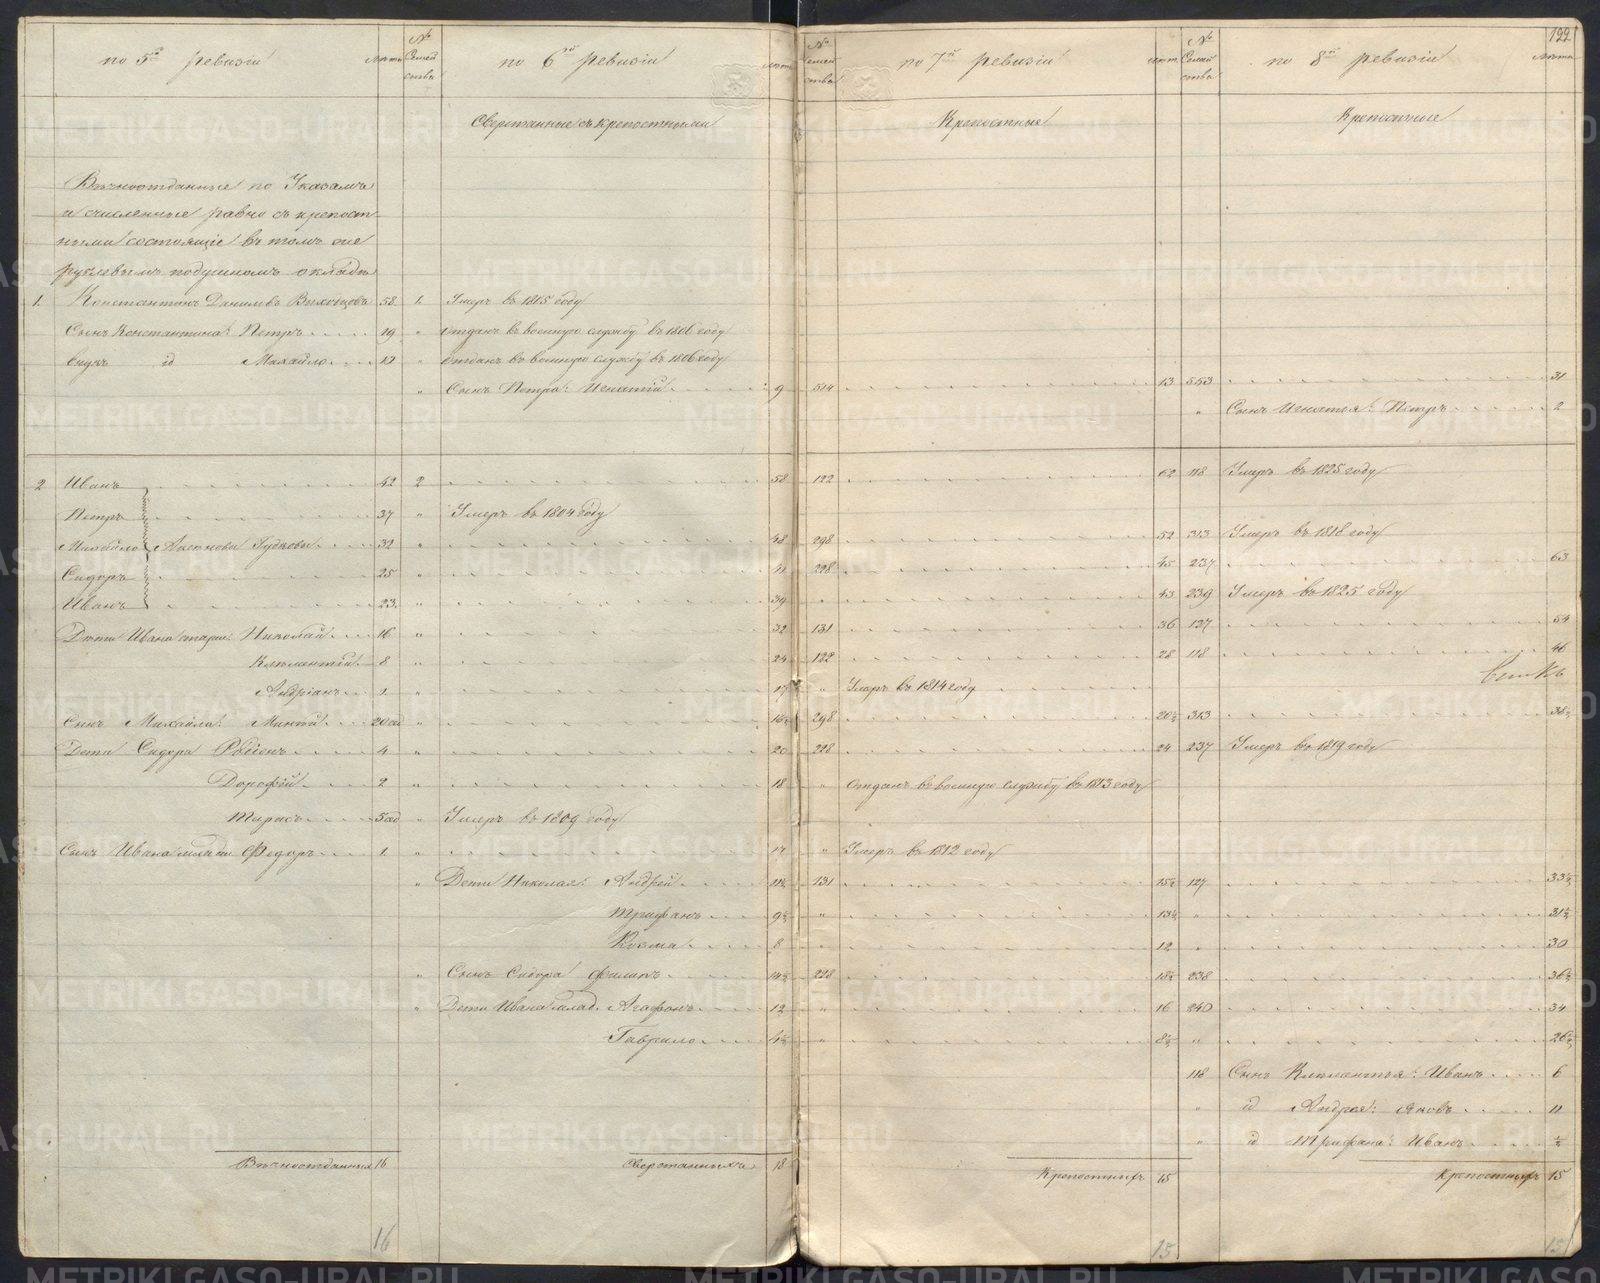 по 5й ревизіи
лѣта
№ Семейства
по 6й ревизіи
лѣта
№ Семейства
по 7й ревизіи
лѣта
№ Семейства
по 8й ревизіи
лѣта
122
Сверстанные съ крепостными
Крепостные
Крепостные
Вѣчноотданные по Указамъ
и счисленные равно съ крепост
ными состоящіе въ томъ же
рублевымъ подушномъ окладѣ
1. Константинъ Даниловъ Выходцовъ 58 1. Умеръ въ 1815 году
Сынъ Константина: Петръ 19 " Отданъ въ военную службу въ 1806 году
id Михайло 12 " Отданъ въ военную службу въ 1806 году
" Сынъ Петра: Игнатій 9 514 13 553 31
" Сынъ Игнатья: Петръ 2
2 Иванъ 42 2 58 122 62 118 Умеръ въ 1825 году
Петръ 37 " Умеръ въ 1804 году
Михайло 32 " 48 298 52 313 Умеръ въ 1818 году
Сидоръ 25 " 41 228 45 237 63
Иванъ 23 " 39 " 43 239 Умеръ въ 1825 году
Дѣти Ивана старш: Николай 16 " 32 131 36 127 54
Климантій 8 " 24 122 28 118 46
Андріянъ 1 " 17 " Умеръ въ 1814 году
Сынъ Михайла: 298 313
Дети Сидора 4 " 20 228 24 237 Умеръ въ 1819 году
Дорофей 2 " 18 " Отданъ въ военную службу въ 1813 году
Тарасъ " Умеръ въ 1809 году
Сынъ Ивана Федоръ 1 " 17 " Умеръ въ 1812 году
" Дети Николая: Андрей 131 127
Трифанъ " "
Козма 8 " 12 " 30
" Сынъ Сидора Филипъ 228 238
" Дети Ивана млад. Агафонъ 12 " 16 240 34
Гаврило " "
118 Сынъ Климантья: Иванъ 6
" id Андрея: Яковъ 11
" id Трифана: Иванъ ½
Вѣчноотданныхъ 16
Сверстанныхъ 18
Крепостныхъ 15
Крепостныхъ 15
16
15
15
METRIKI.GASO-URAL.RU